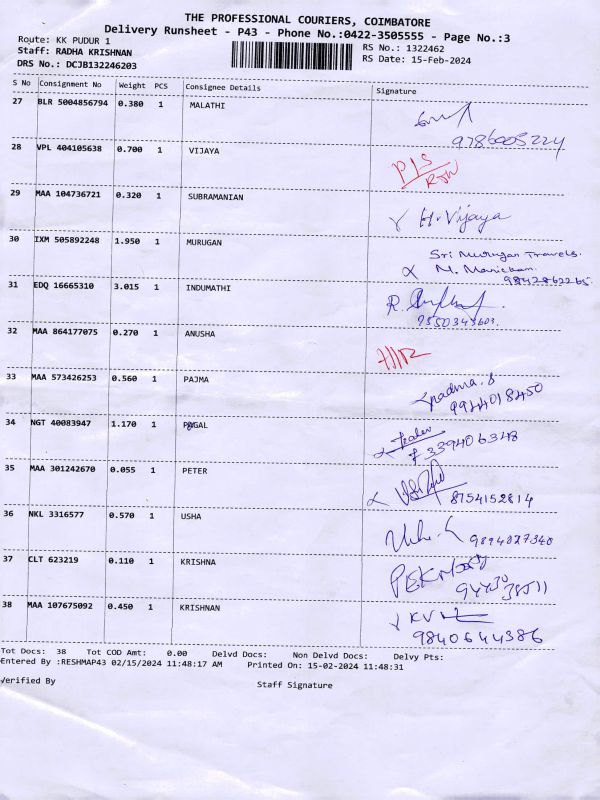 THE PROFESSIONAL COURIERS, COIMBATORE
Delivery Runsheet - P43 - Phone No.:0422-3505555 - Page No.:3
Route: KK PUDUR 1
RS No.: 1322462
Staff: RADHA KRISHNAN
RS Date: 15-Feb-2024
DRS No.: DCJB132246203
S No Consignment No Weight PCS Consignee Details Signature
27 BLR 5004856794 0.380 1 MALATHI
9786005224
28 VPL 404105638 0.700 1 VIJAYA
P/S
29 MAA 104736721 0.320 1 SUBRAMANIAN H.Vijaya
30 IXM 505892248 1.950 1 MURUGAN Sri Murugan Travels.
M. Manickam
9842862265
31 EDQ 16665310 3.015 1 INDUMATHI R.
9550343603
32 MAA 864177075 0.270 1 ANUSHA
33 MAA 573426253 0.560 1 PAJMA padma. S
9944018450
34 NGT 40083947 1.170 1
9339406348
35 MAA 301242670 0.055 1 PETER 8754152814
36 NKL 3316577 0.570 1 USHA 9894027340
37 CLT 623219 0.110 1 KRISHNA
38 MAA 107675092 0.450 1 KRISHNAN KV
9840644386
Tot Docs: 38 Tot COD Amt: 0.00 Delvd Docs: Non Delvd Docs: Delvy Pts:
Entered By :RESHMAP43 02/15/2024 11:48:17 AM Printed On: 15-02-2024 11:48:31
Verified By Staff Signature